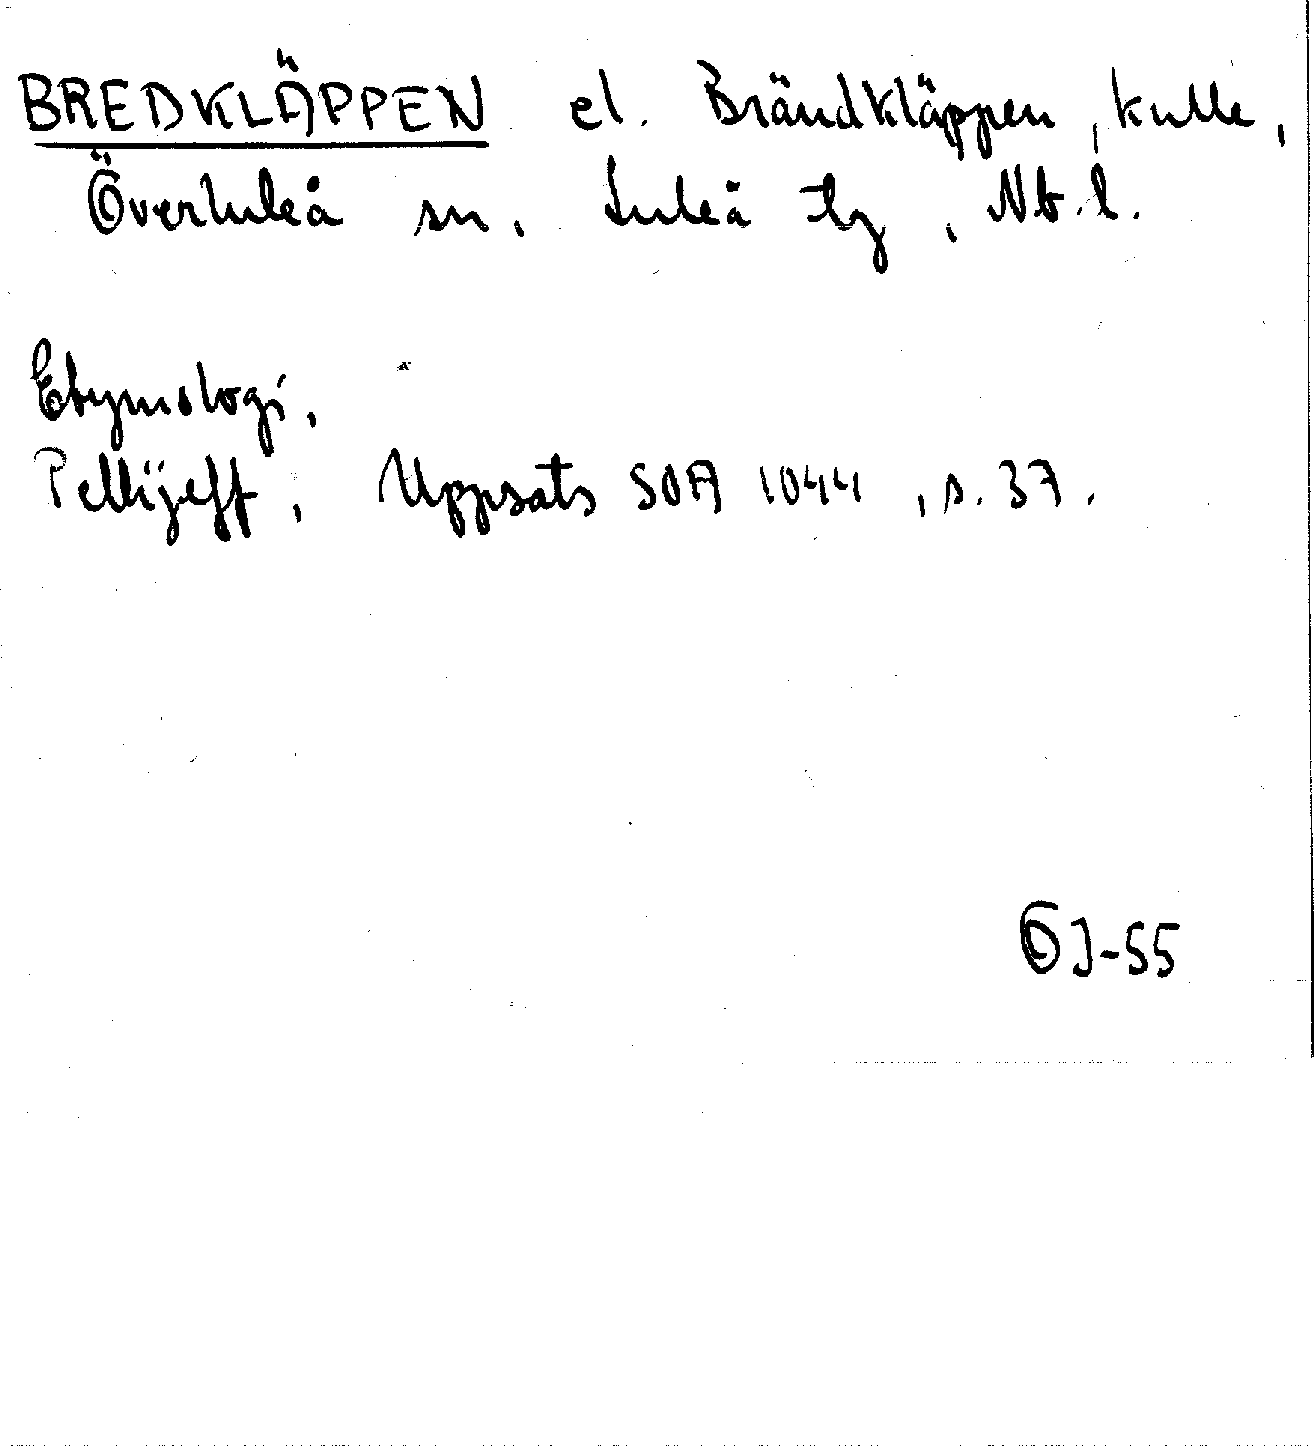 BREDKLÄPPEN el. Brändkläppen, kulle,
Överluleå sn, Luleå tg, Nb.l.
Etymologi,
Pellijeff, Uppsats SOA 1044, s. 37.
OJ-55